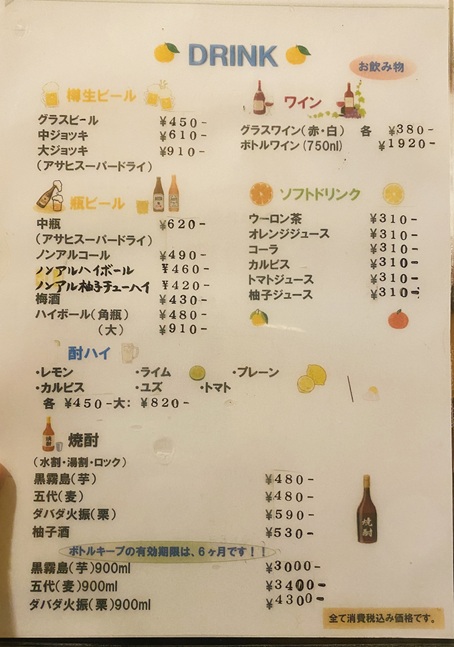 DRINK
お飲み物
樽生ビール
グラスビール ¥450-
中ジョッキ ¥610-
大ジョッキ ¥910-
(アサヒスーパードライ)
瓶ビール
中瓶 ¥620-
(アサヒスーパードライ)
ノンアルコール ¥490-
ノンアルハイボール ¥460-
ノンアル柚子チューハイ ¥420-
梅酒 ¥430-
ハイボール(角瓶) ¥480-
(大) ¥910-
ワイン
グラスワイン(赤・白) 各 ¥380-
ボトルワイン(750ml) ¥1920-
ソフトドリンク
ウーロン茶 ¥310-
オレンジジュース ¥310-
コーラ ¥310-
カルピス ¥310-
トマトジュース ¥310-
柚子ジュース ¥310-
酎ハイ
・レモン ・ライム ・プレーン
・カルピス ・ユズ ・トマト
各 ¥450-大: ¥820-
焼酎
(水割・湯割・ロック)
黒霧島(芋) ¥480-
五代(麦) ¥480-
ダバダ火振(栗) ¥590-
柚子酒 ¥530-
焼酎
ボトルキープの有効期限は、6ヶ月です!!
黒霧島(芋)900ml ¥3000-
五代(麦)900ml ¥3400-
ダバダ火振(栗)900ml ¥4300-
全て消費税込み価格です。